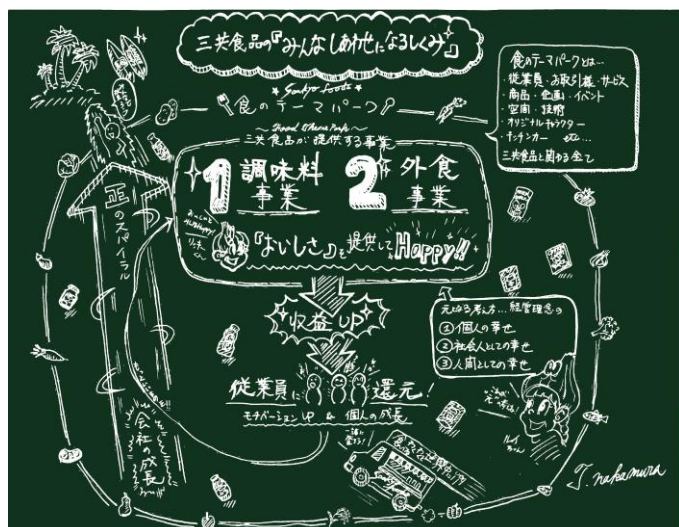 三共食品の『みんなしあわせになるしくみ』
Sankyo foods
食のテーマパーク
三共食品が提供する事業
1 調味料事業
2 外食事業
『おいしさ』を提供して Happy!!
収益UP
従業員に還元!
モチベーションUP & 個人の成長
正のスパイラル
会社の成長
食のテーマパークとは…
・従業員・お取引様・サービス
・商品・企画・イベント
・空間・技術
・オリジナルキャラクター
・キッチンカー etc…
三共食品と関わる全て
元となる考え方…経営理念の
①個人の幸せ
②社会人としての幸せ
③人間としての幸せ
T. nakamura